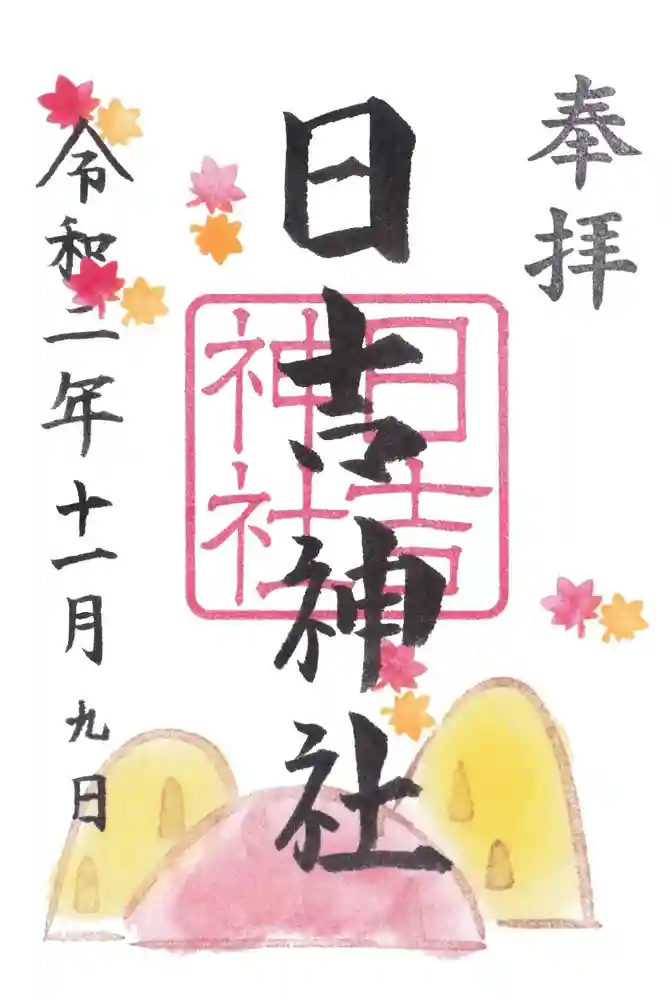 奉拝
日吉神社
日吉
神社
令和二年十一月九日